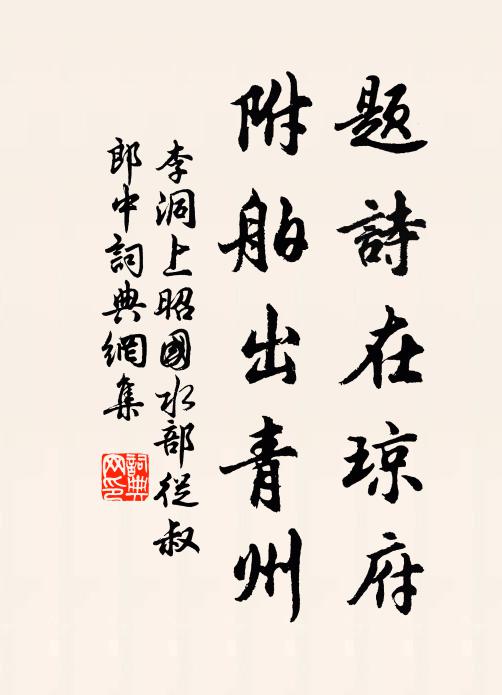 題詩在琼府
附舶出青州
李洞上昭國水部從叔
郎中詞典網集
詞典
网印